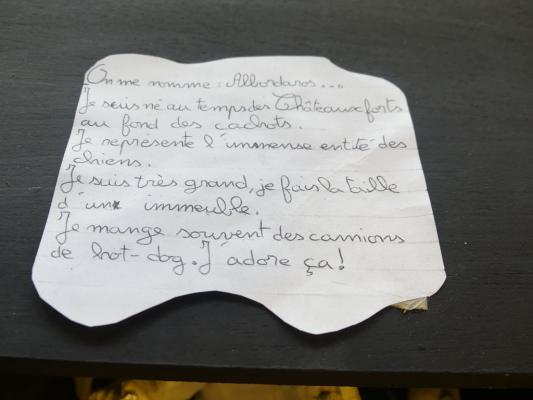 On me nomme : Albordaros...
Je suis né au temps des Châteaux forts
au fond des cachots.
Je représente l'immense entité des
chiens.
Je suis très grand, je fais la taille
d'un immeuble.
Je mange souvent des camions
de hot-dog. J'adore ça !